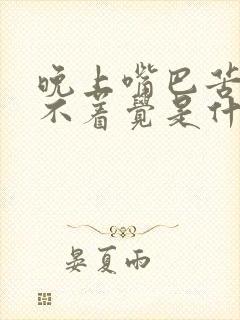 晚上嘴巴苦
不着覺是什
晏夏雨